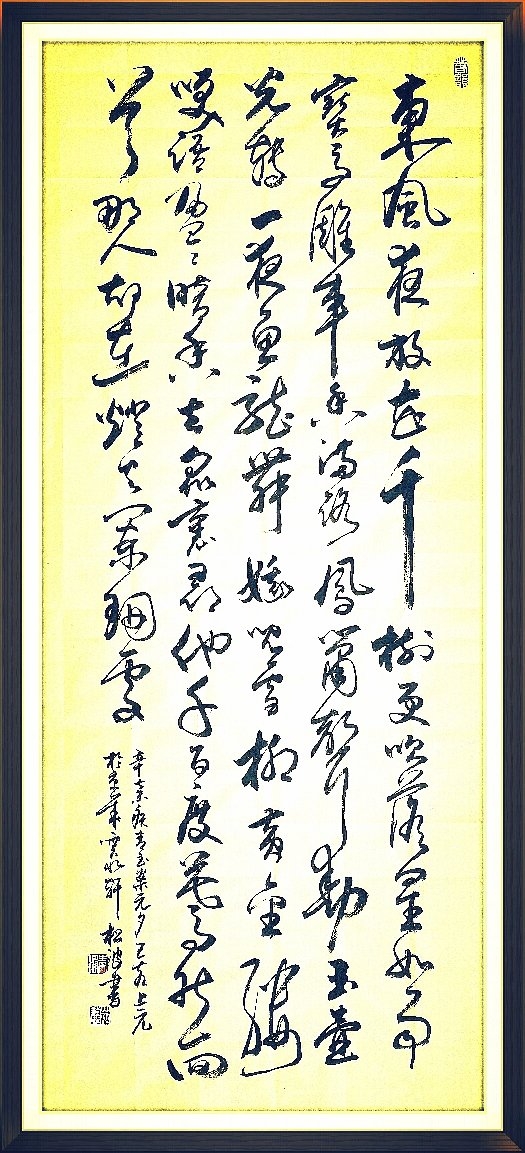 東風夜放花千樹更吹落星如雨
寶馬雕車香滿路鳳簫聲動玉壺
光轉一夜魚龍舞娥兒雪柳黃金縷
笑語盈々暗香去眾裏尋他千百度驀然回
首那人卻在燈火闌珊處
辛棄疾青玉案元夕己亥上元
於京華雲水軒 松波書